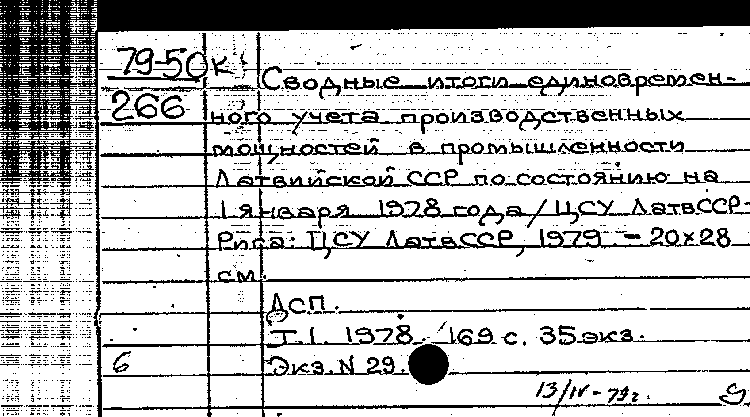 79-50к
266
Сводные итоги единовремен-
ного учета производственных
мощностей в промышленности
Латвийской ССР по состоянию на
1 января 1978 года / ЦСУ ЛатвССР.-
Рига: ЦСУ ЛатвССР, 1979. - 20×28
см.
ДСП.
Т.1. 1978. 169 с. 35 экз.
6
Экз. N 29.
13/IV-79г.